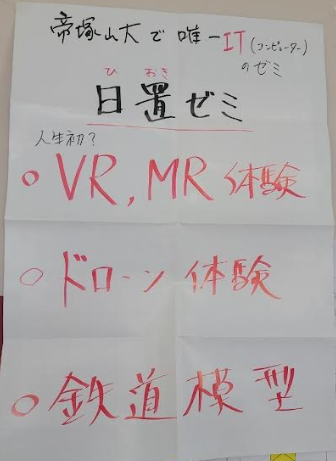 帝塚山大で唯一IT(コンピューター)
のゼミ
ひおき
日置ゼミ
人生初?
○VR,MR体験
○ドローン体験
○鉄道模型